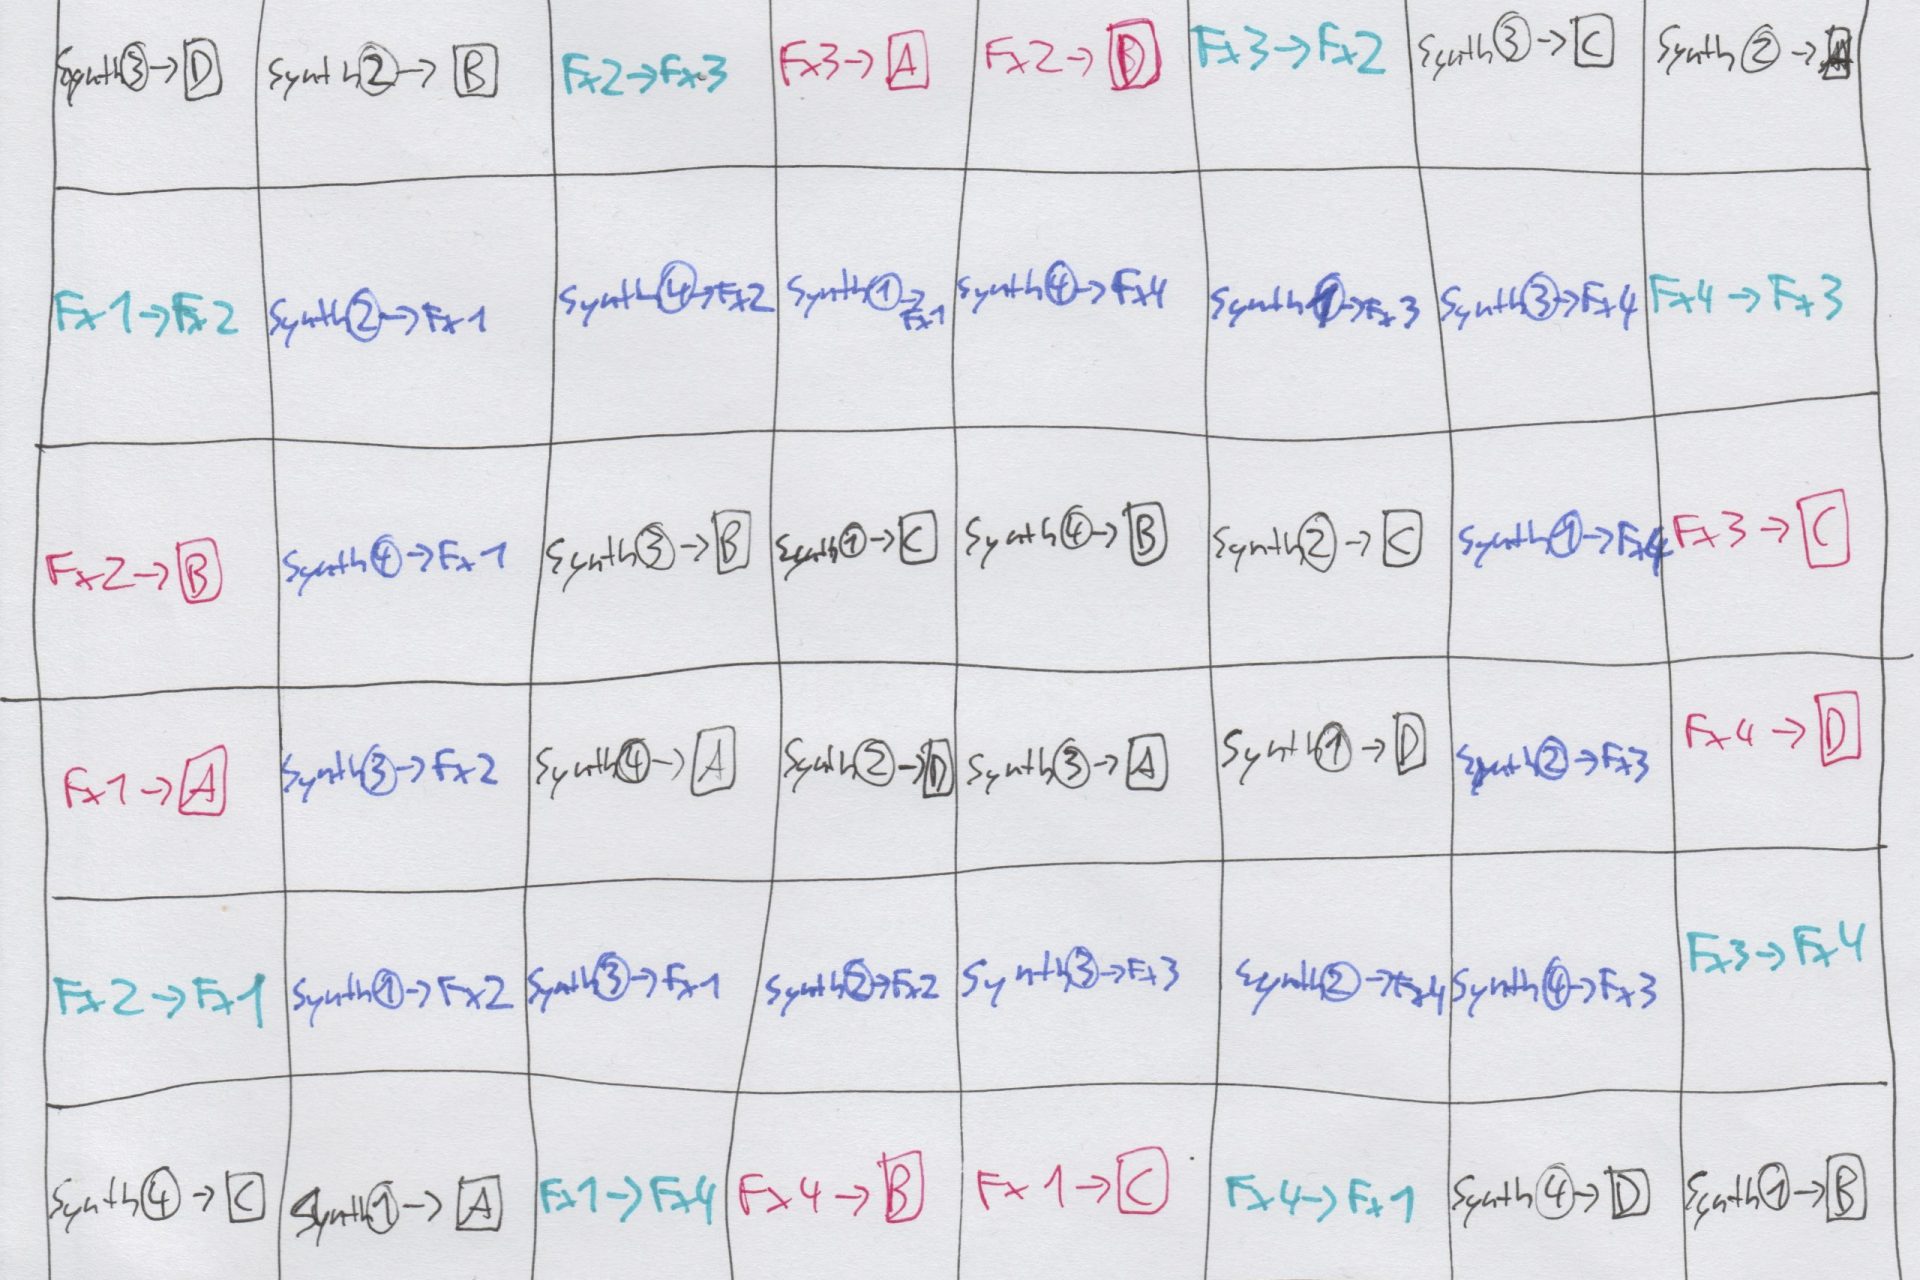 Synth③→D Synth②→B Fx2→Fx3 Fx3→A Fx2→D Fx3→Fx2 Synth③→C Synth②→A
Fx1→Fx2 Synth②→Fx1 Synth④→Fx2 Synth①→Fx1 Synth④→Fx4 Synth①→Fx3 Synth③→Fx4 Fx4→Fx3
Fx2→B Synth④→Fx1 Synth③→B Synth①→C Synth④→B Synth②→C Synth①→Fx4 Fx3→C
Fx1→A Synth③→Fx2 Synth④→A Synth②→D Synth③→A Synth①→D Synth②→Fx3 Fx4→D
Fx2→Fx1 Synth①→Fx2 Synth③→Fx1 Synth②→Fx2 Synth③→Fx3 Synth②→Fx4 Synth④→Fx3 Fx3→Fx4
Synth④→C Synth①→A Fx1→Fx4 Fx4→B Fx1→C Fx4→Fx1 Synth④→D Synth①→B